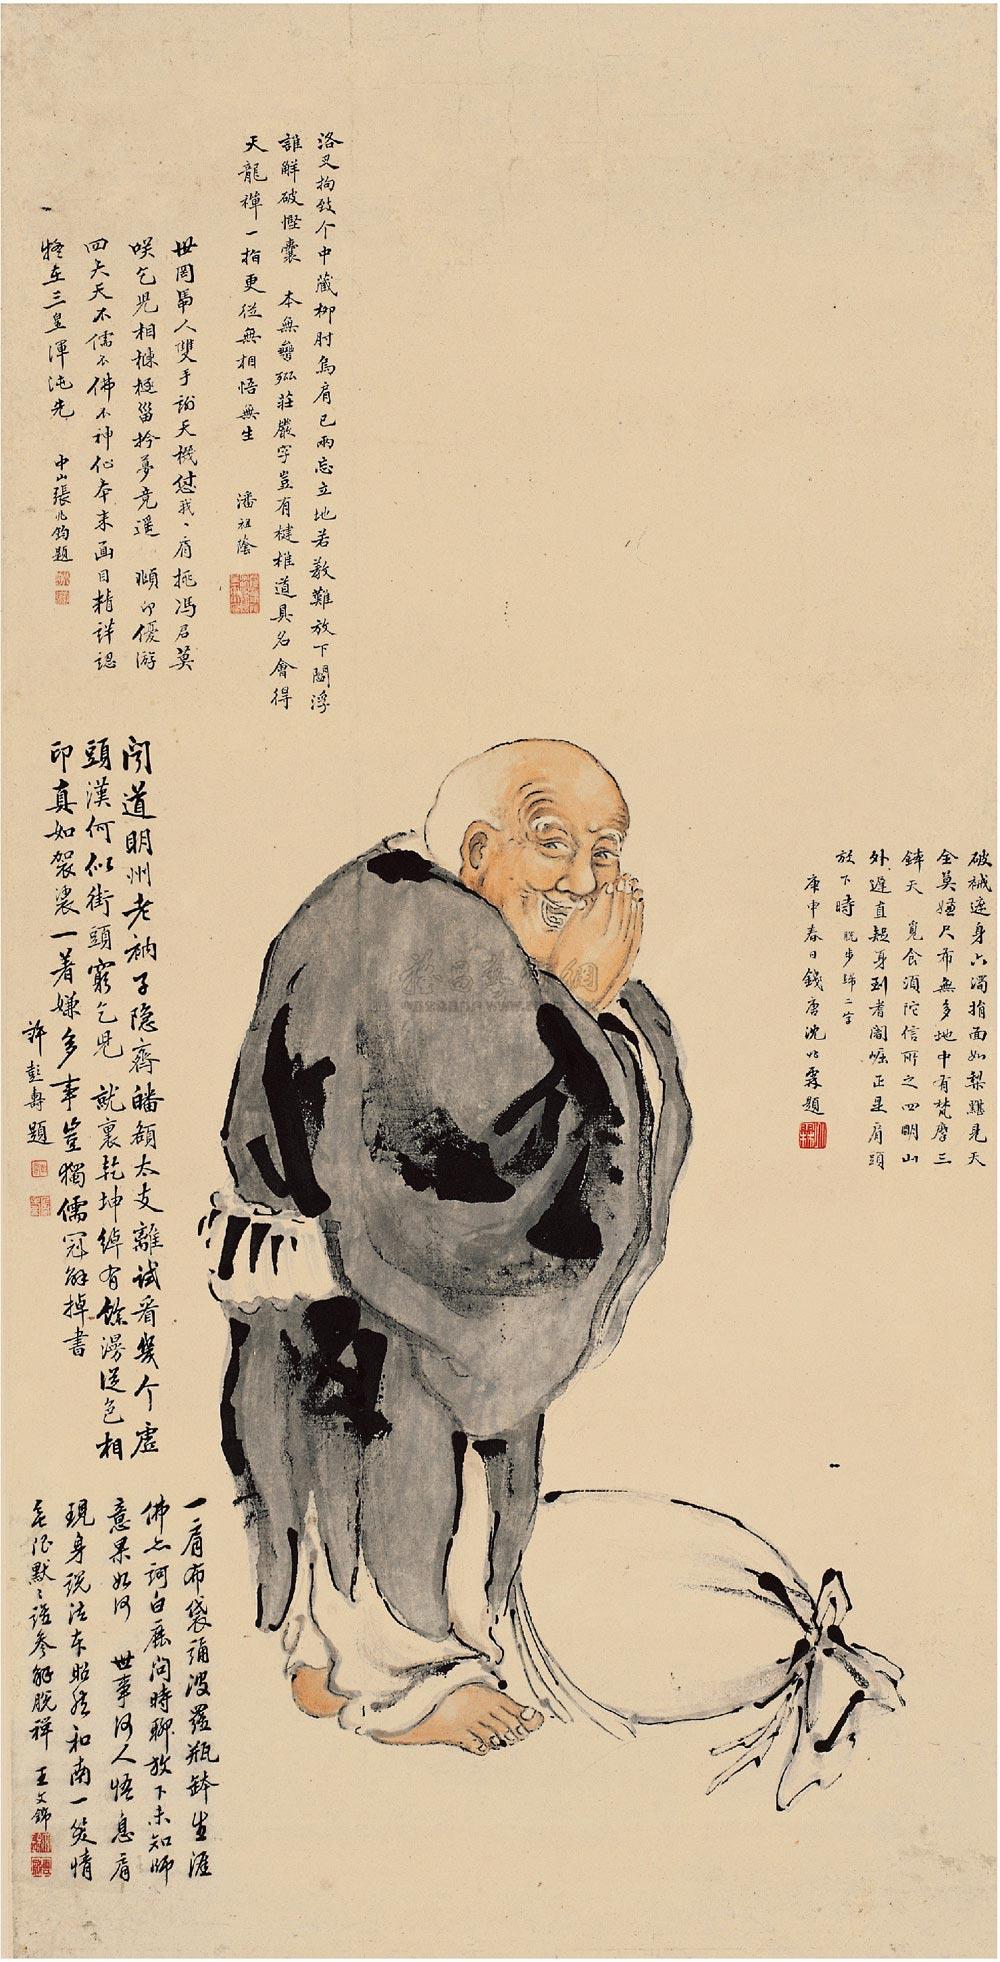 洛叉拘致个中藏柳肘鳥肩已兩忘立地若教難放下閻浮
誰解破慳囊 本無雙弘莊嚴字豈有楗椎道具名會得
天龍禪一指更從無相悟無生 潘祖蔭
世罔馬人雙手謝天機愆我〻肩挑馮君莫
咲乞兒相 夢竞遥 頫卬優游
四大天不儒不佛不神仙本来面目精詳認
悟在三皇渾沌先 中山張兆鈞題
聞道明州老衲子隐齊皤額太支離試看幾个虛
頭漢何似街頭窮乞児 就裏乾坤綽有餘漫從色相
印真如袈裟一著嫌多事豈獨儒冠解掉書
許彭壽題
一肩布袋誦波羅瓶鉢生涯
佛亦訶白鹿問時聊放下未知師
意果如何 世事何人悟息肩
現身説法本昭然和南一笑情
無限默〻誰参解脱禪 王文錦
破衲遮身六濁捐面如梨黮見天
全莫嫌尺布無多地中有梵磨三
鉢天 覓食須陀信所之四明山
外遲直趨身到耆闍崛正是肩頭
放下時 脱步歸二字
庚申春日錢唐沈 霖題